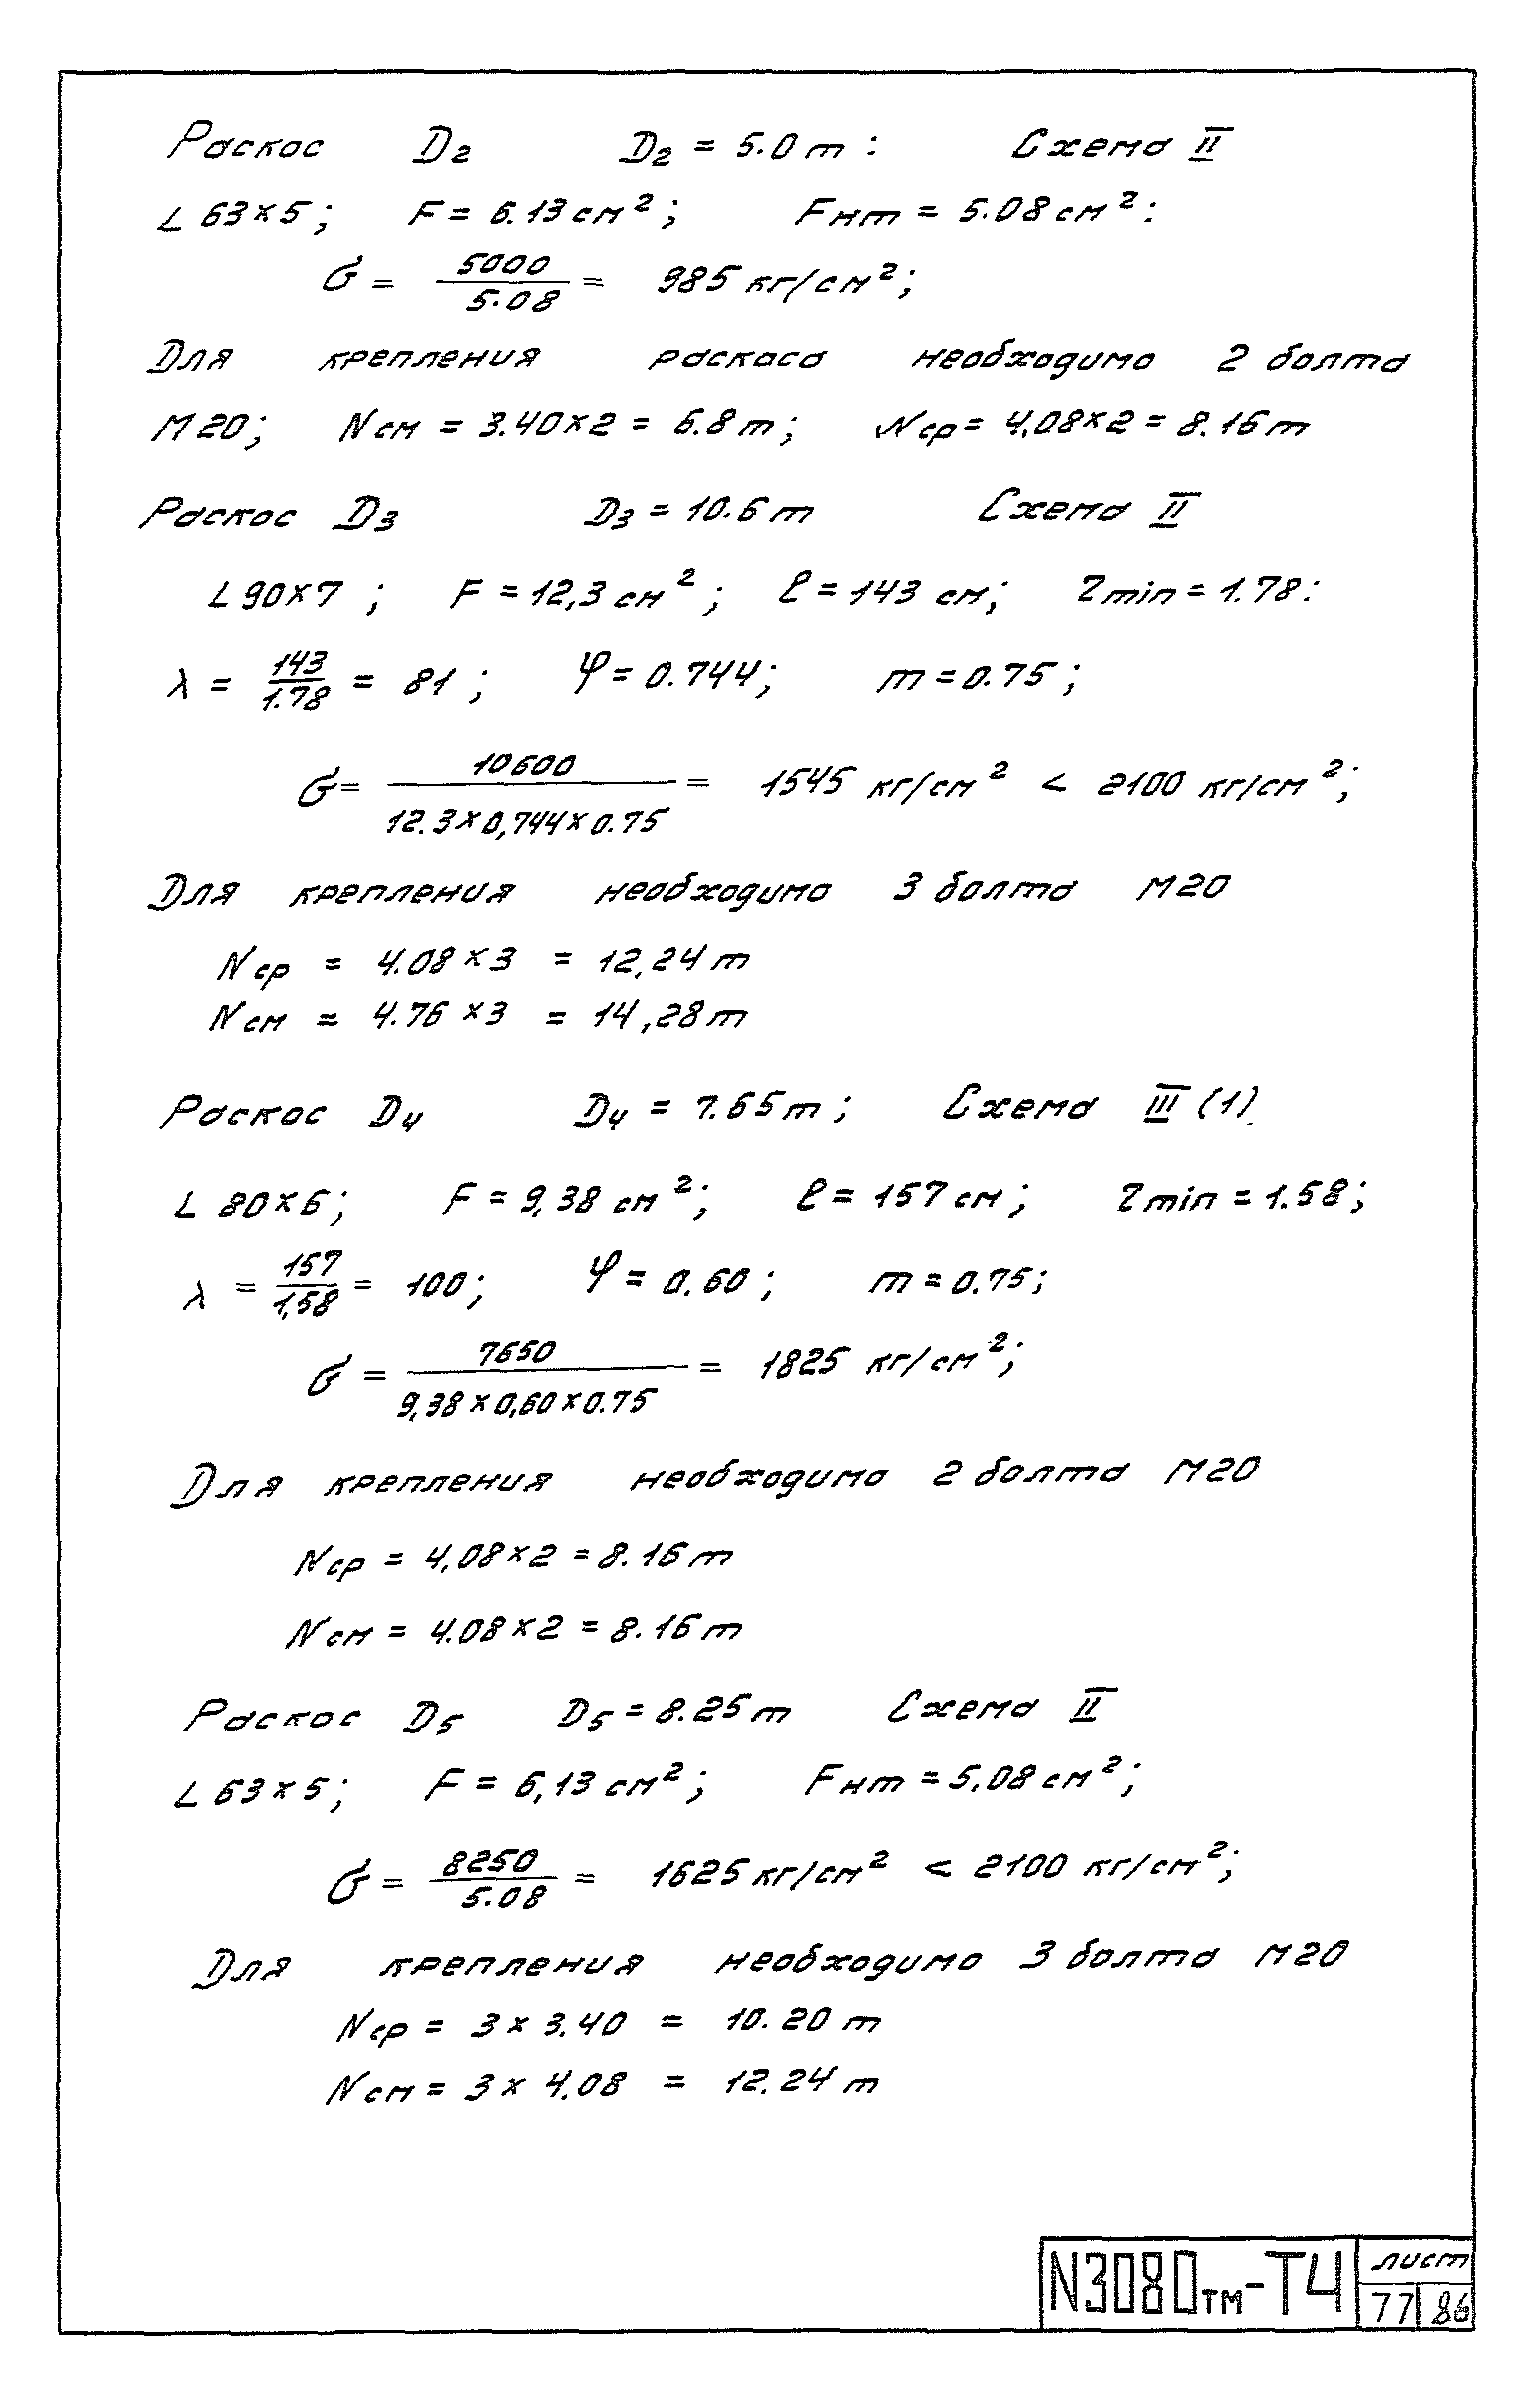 Раскос D₂ D₂ = 5.0 т : Схема II
L 63×5; F = 6.13 см²; Fнт = 5.08 см²:
σ = 5000 / 5.08 = 985 кг/см²;
Для крепления раскоса необходимо 2 болта
М20; Nсм = 3.40×2 = 6.8 т; Nср = 4,08×2 = 8.16 т
Раскос D₃ D₃ = 10.6 т Схема II
L 90×7 ; F = 12,3 см² ; ℓ = 143 см; Zmin = 1.78:
λ = 143 / 1.78 = 81 ; φ = 0.744; m = 0.75 ;
σ = 10600 / 12.3×0,744×0.75 = 1545 кг/см² < 2100 кг/см²;
Для крепления необходимо 3 болта М20
Nср = 4.08×3 = 12,24 т
Nсм = 4.76×3 = 14,28 т
Раскос D₄ D₄ = 7.65 т ; Схема III (1)
L 80×6; F = 9,38 см²; ℓ = 157 см ; Zmin = 1.58;
λ = 157 / 1,58 = 100; φ = 0.60 ; m = 0.75;
σ = 7650 / 9,38×0,60×0.75 = 1825 кг/см²;
Для крепления необходимо 2 болта М20
Nср = 4,08×2 = 8.16 т
Nсм = 4.08×2 = 8.16 т
Раскос D₅ D₅ = 8.25 т Схема II
L 63×5; F = 6,13 см²; Fнт = 5,08 см²;
σ = 8250 / 5.08 = 1625 кг/см² < 2100 кг/см²;
Для крепления необходимо 3 болта М20
Nср = 3 × 3.40 = 10.20 т
Nсм = 3 × 4.08 = 12.24 т
N3080тм-Т4 лист
77 86